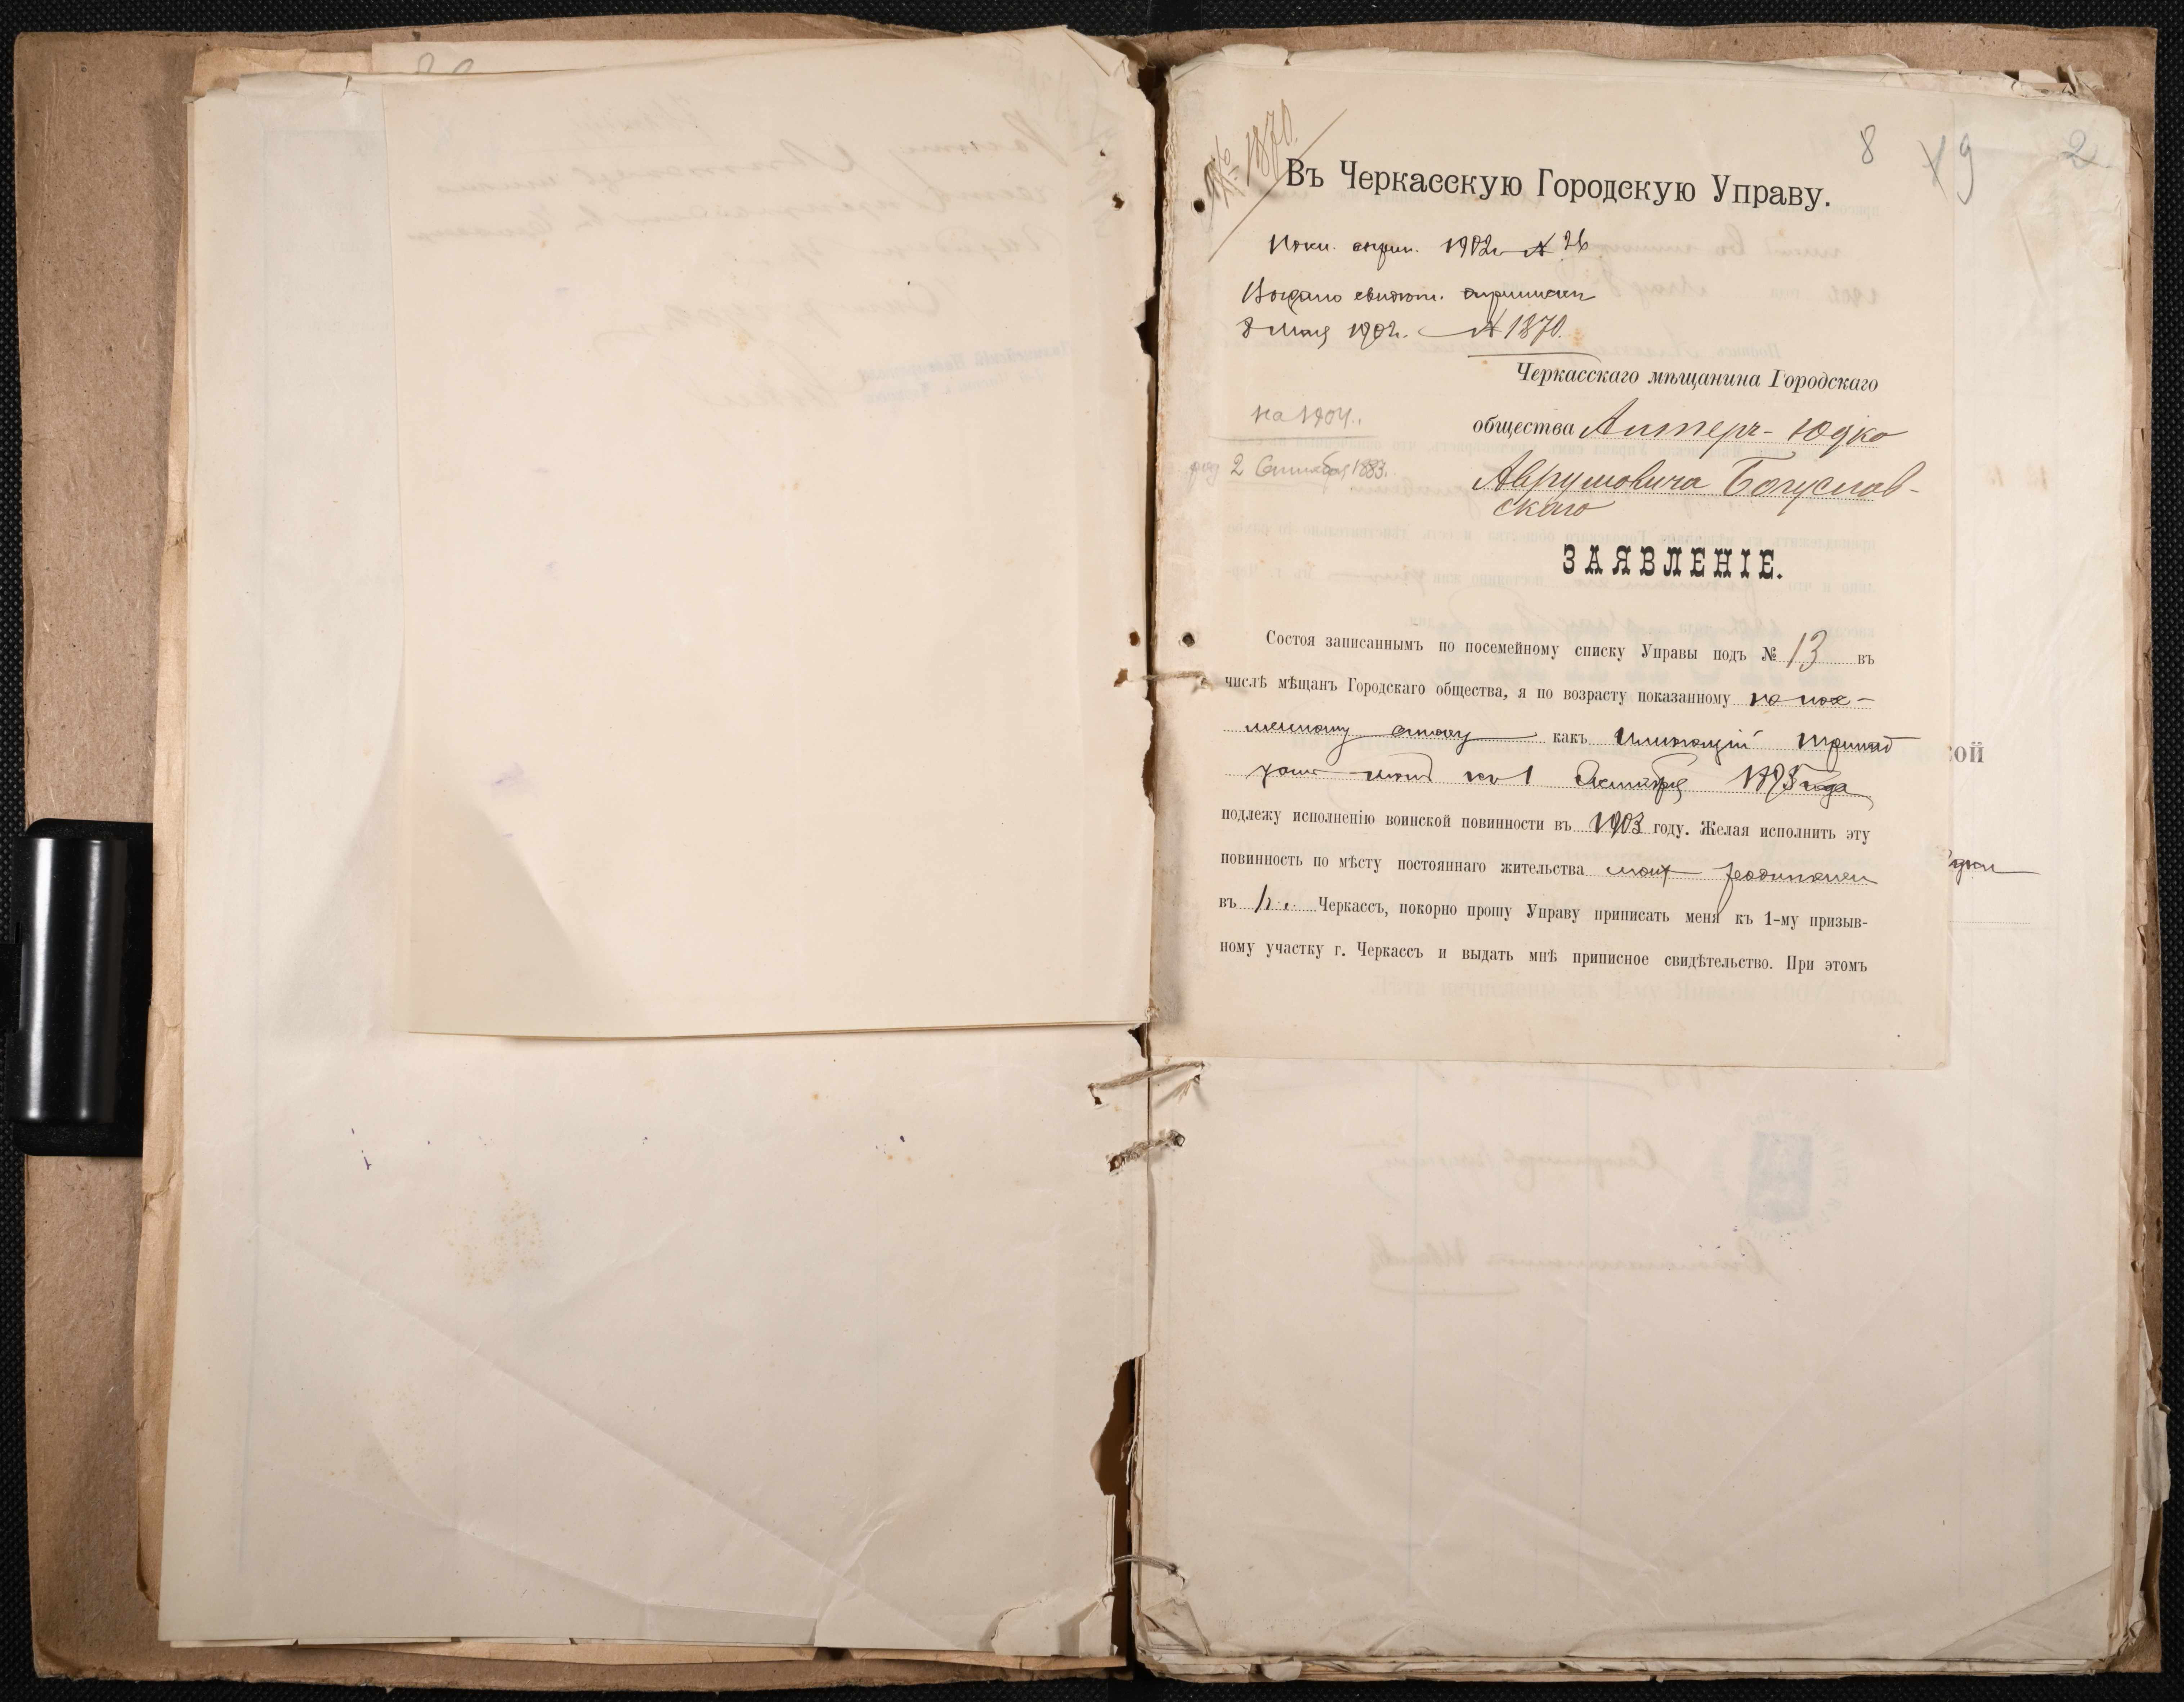 8 19 2
№ 1870.
Въ Черкасскую Городскую Управу.
1902 № 26
Выдано свидѣт. о приписки
8 Мая 1902 г. № 1870.
Черкасскаго мѣщанина Городскаго
на 1904 г.
общества Алтеръ-Юдко
род 2 Сентября 1883.
Аврумовича Богуслав-
скаго
ЗАЯВЛЕНІЕ.
Состоя записаннымъ по посемейному списку Управы подъ № 13 въ
числѣ мѣщанъ Городскаго общества, я по возрасту показанному по
списку какъ имѣющій
лѣтъ къ 1 Октября года
подлежу исполненію воинской повинности въ 1903 году. Желая исполнить эту
повинность по мѣсту постояннаго жительства моих родителей
въ г. Черкассъ, покорно прошу Управу приписать меня къ 1-му призыв-
ному участку г. Черкассъ и выдать мнѣ приписное свидѣтельство. При этомъ
ой